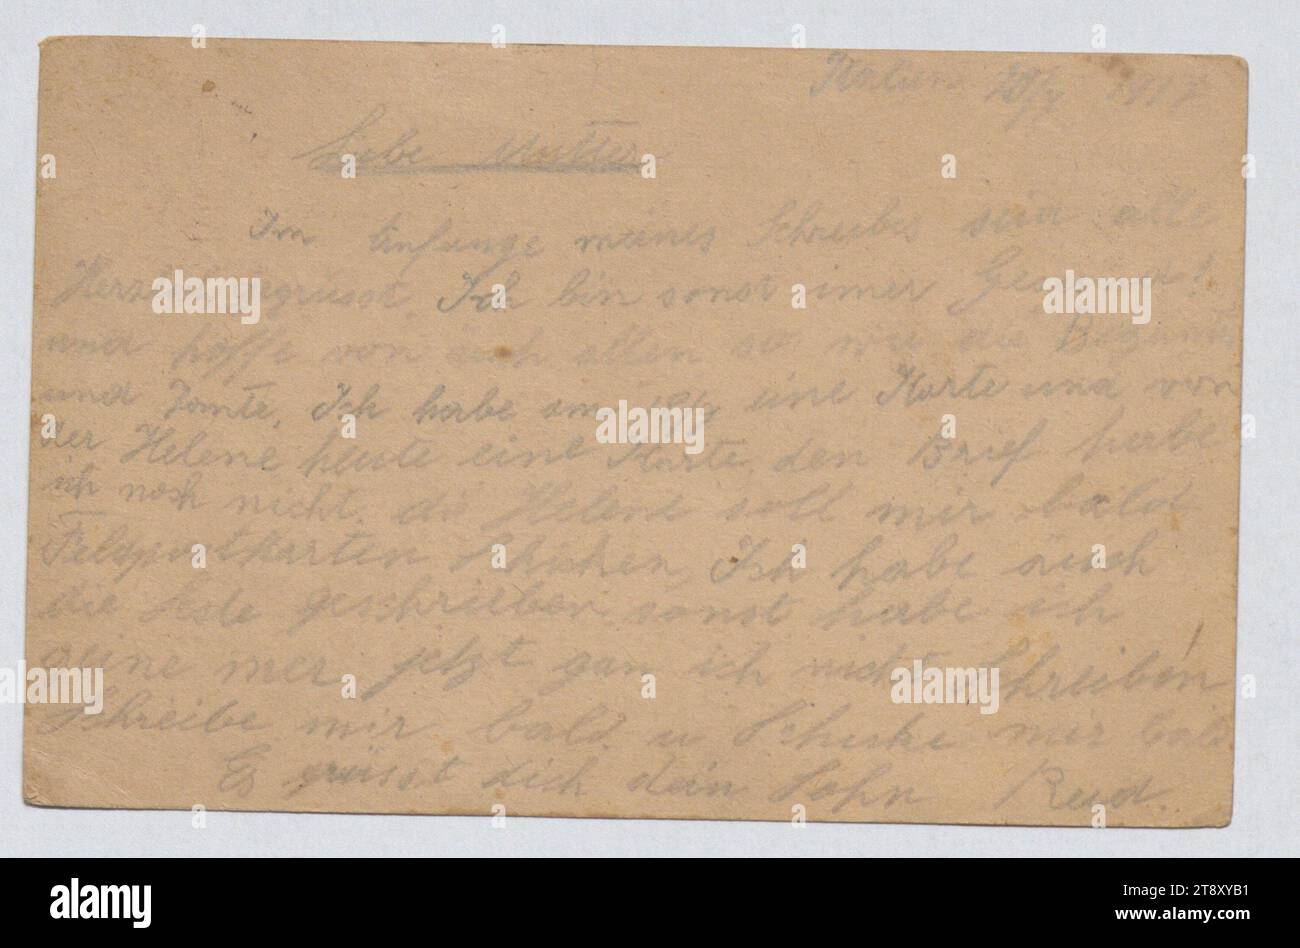 Italien 20/4 1917
Liebe Mutter
Im Anfange meines Schreibes seid alle
Herzlich gegrüsst. Ich bin sonst imer Gesund!
und hoffe von euch allen so wie die
und Tante. Ich habe am 19/4 eine Karte und von
der Helene heute eine Karte, den Brief habe
ich noch nicht. die Helene soll mir bald
Feldpostkarten Schicken. Ich habe auch
die geschrieben sonst habe ich
keine mer jetzt ich nicht Schreiben
Schreibe mir bald u Schicke mir bald
Es grüsst dich dein Sohn Rud.
alamy
Image ID: 2T8XYB1
www.alamy.com